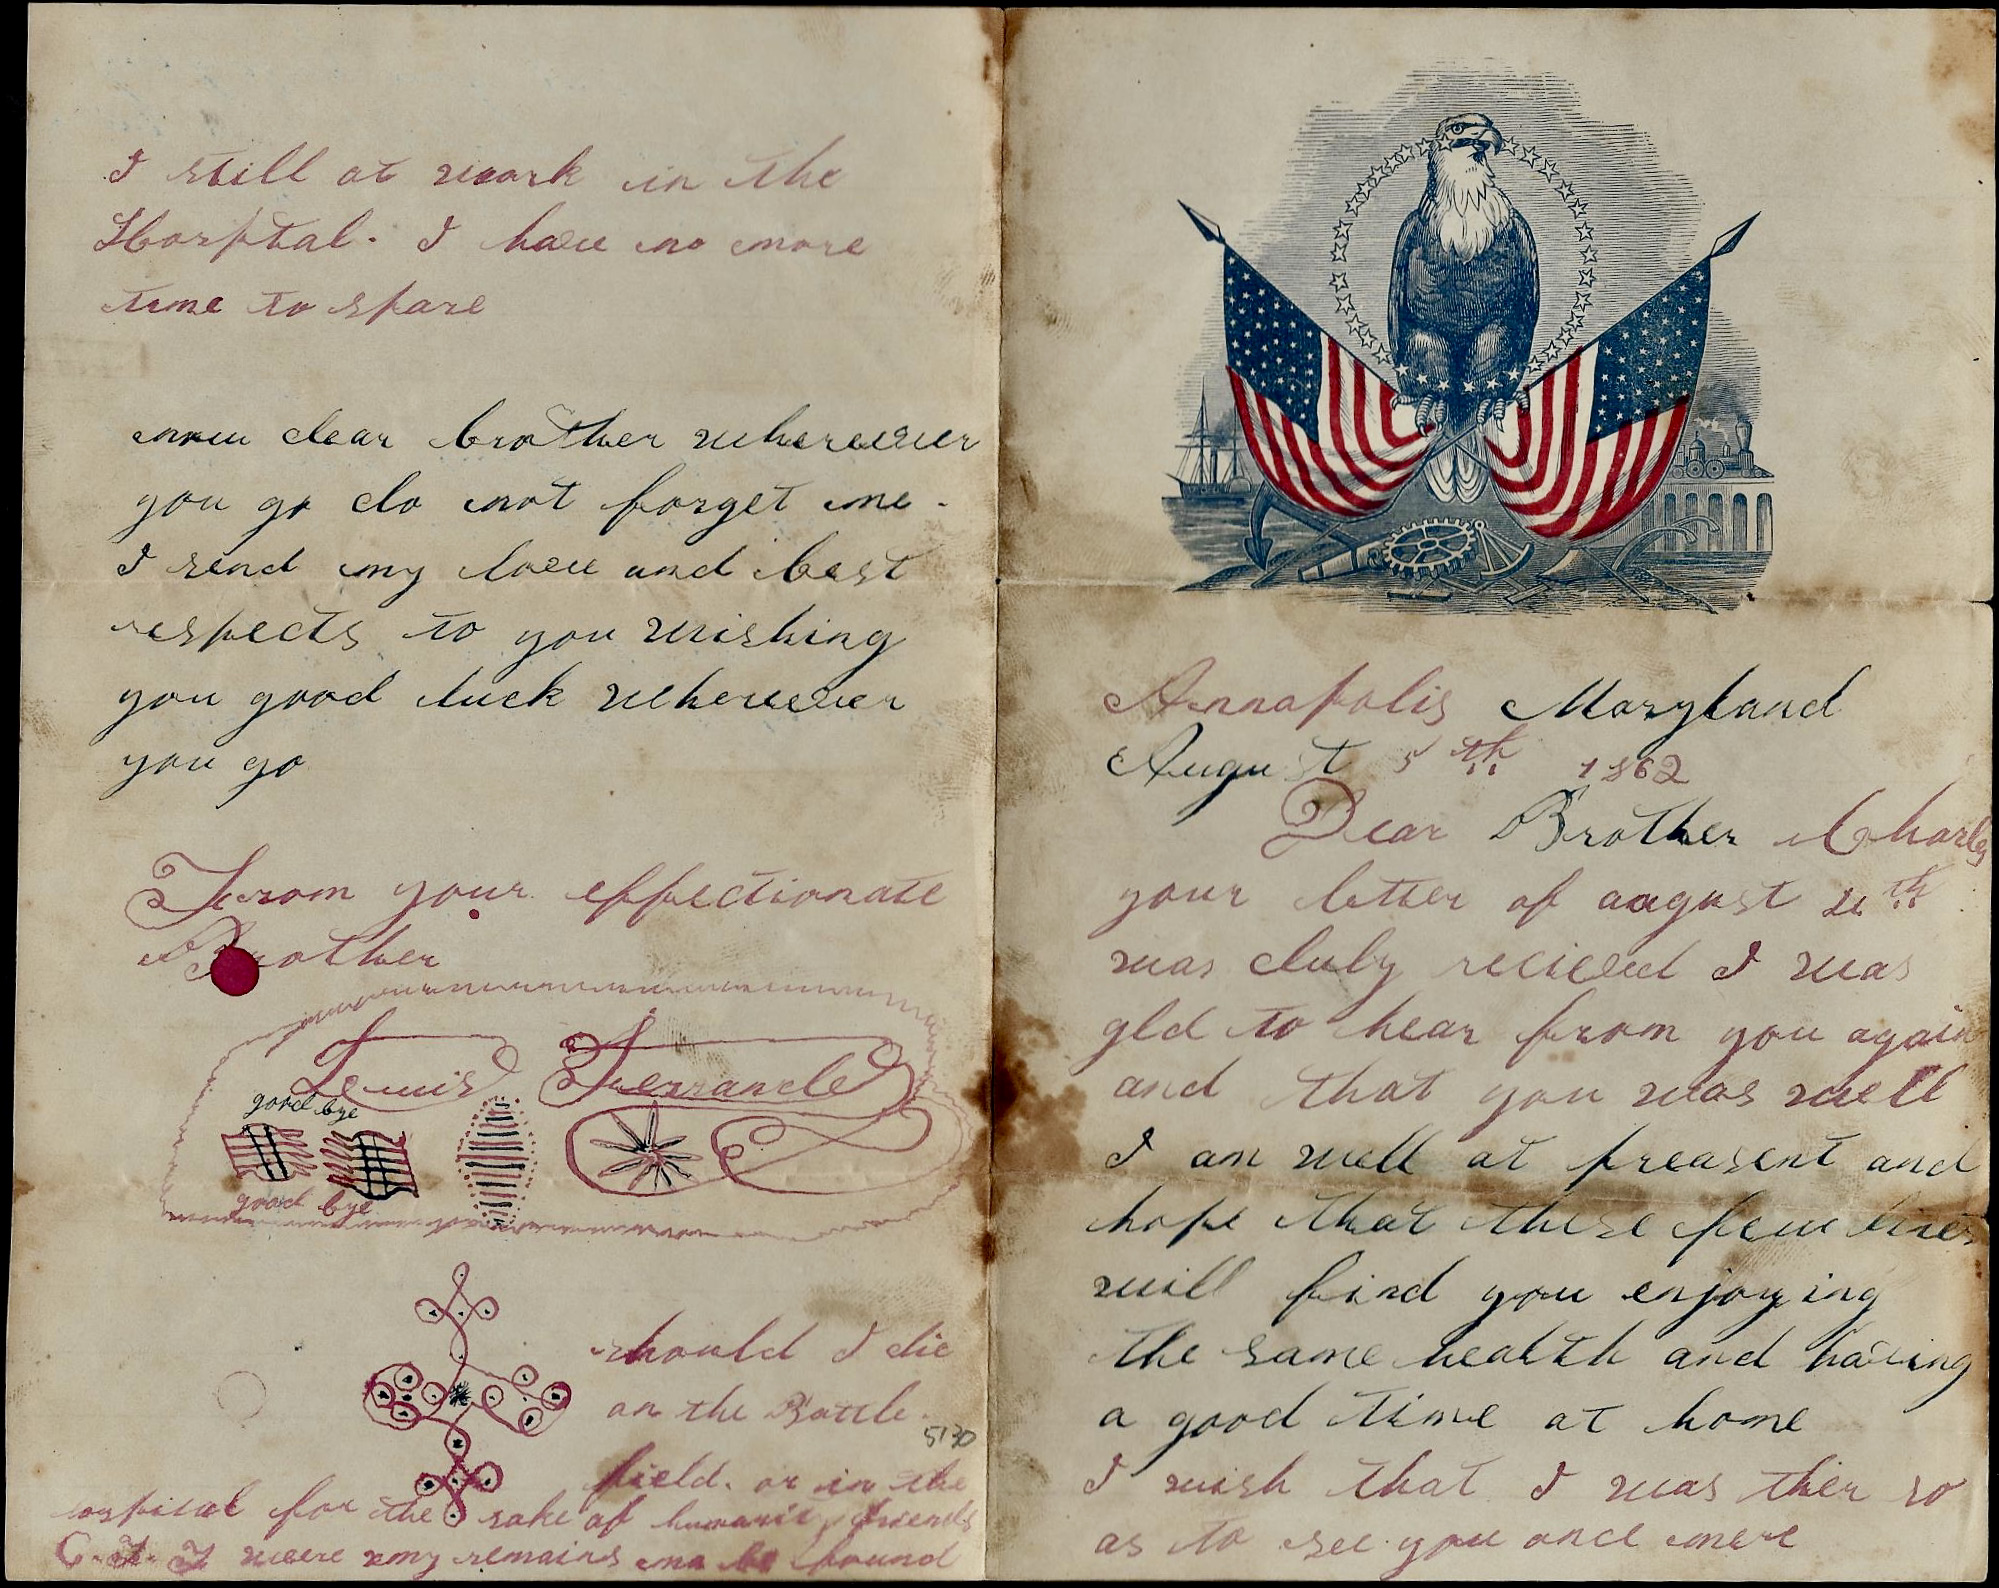 Annapolis Maryland
August 5th 1862
Dear Brother Charles
your letter of august 4th
was duly recieved I was
gld to hear from you again
and that you was well
I am well at preasent and
hope that these few lines
will find you enjoying
the same health and having
a good time at home
I wish that I was ther so
as to see you once more
I still at work in the
Hospital. I have no more
time to spare
now dear brother wherever
you go do not forget me.
I send my love and best
respects to you wishing
you good luck wherever
you go
From your effectionate
Brother
Lewis Ferrande
good bye
good bye
should I die
on the Battle.
5130
field. or in the
ospital for the sake of humanity friends
were my remains may be found